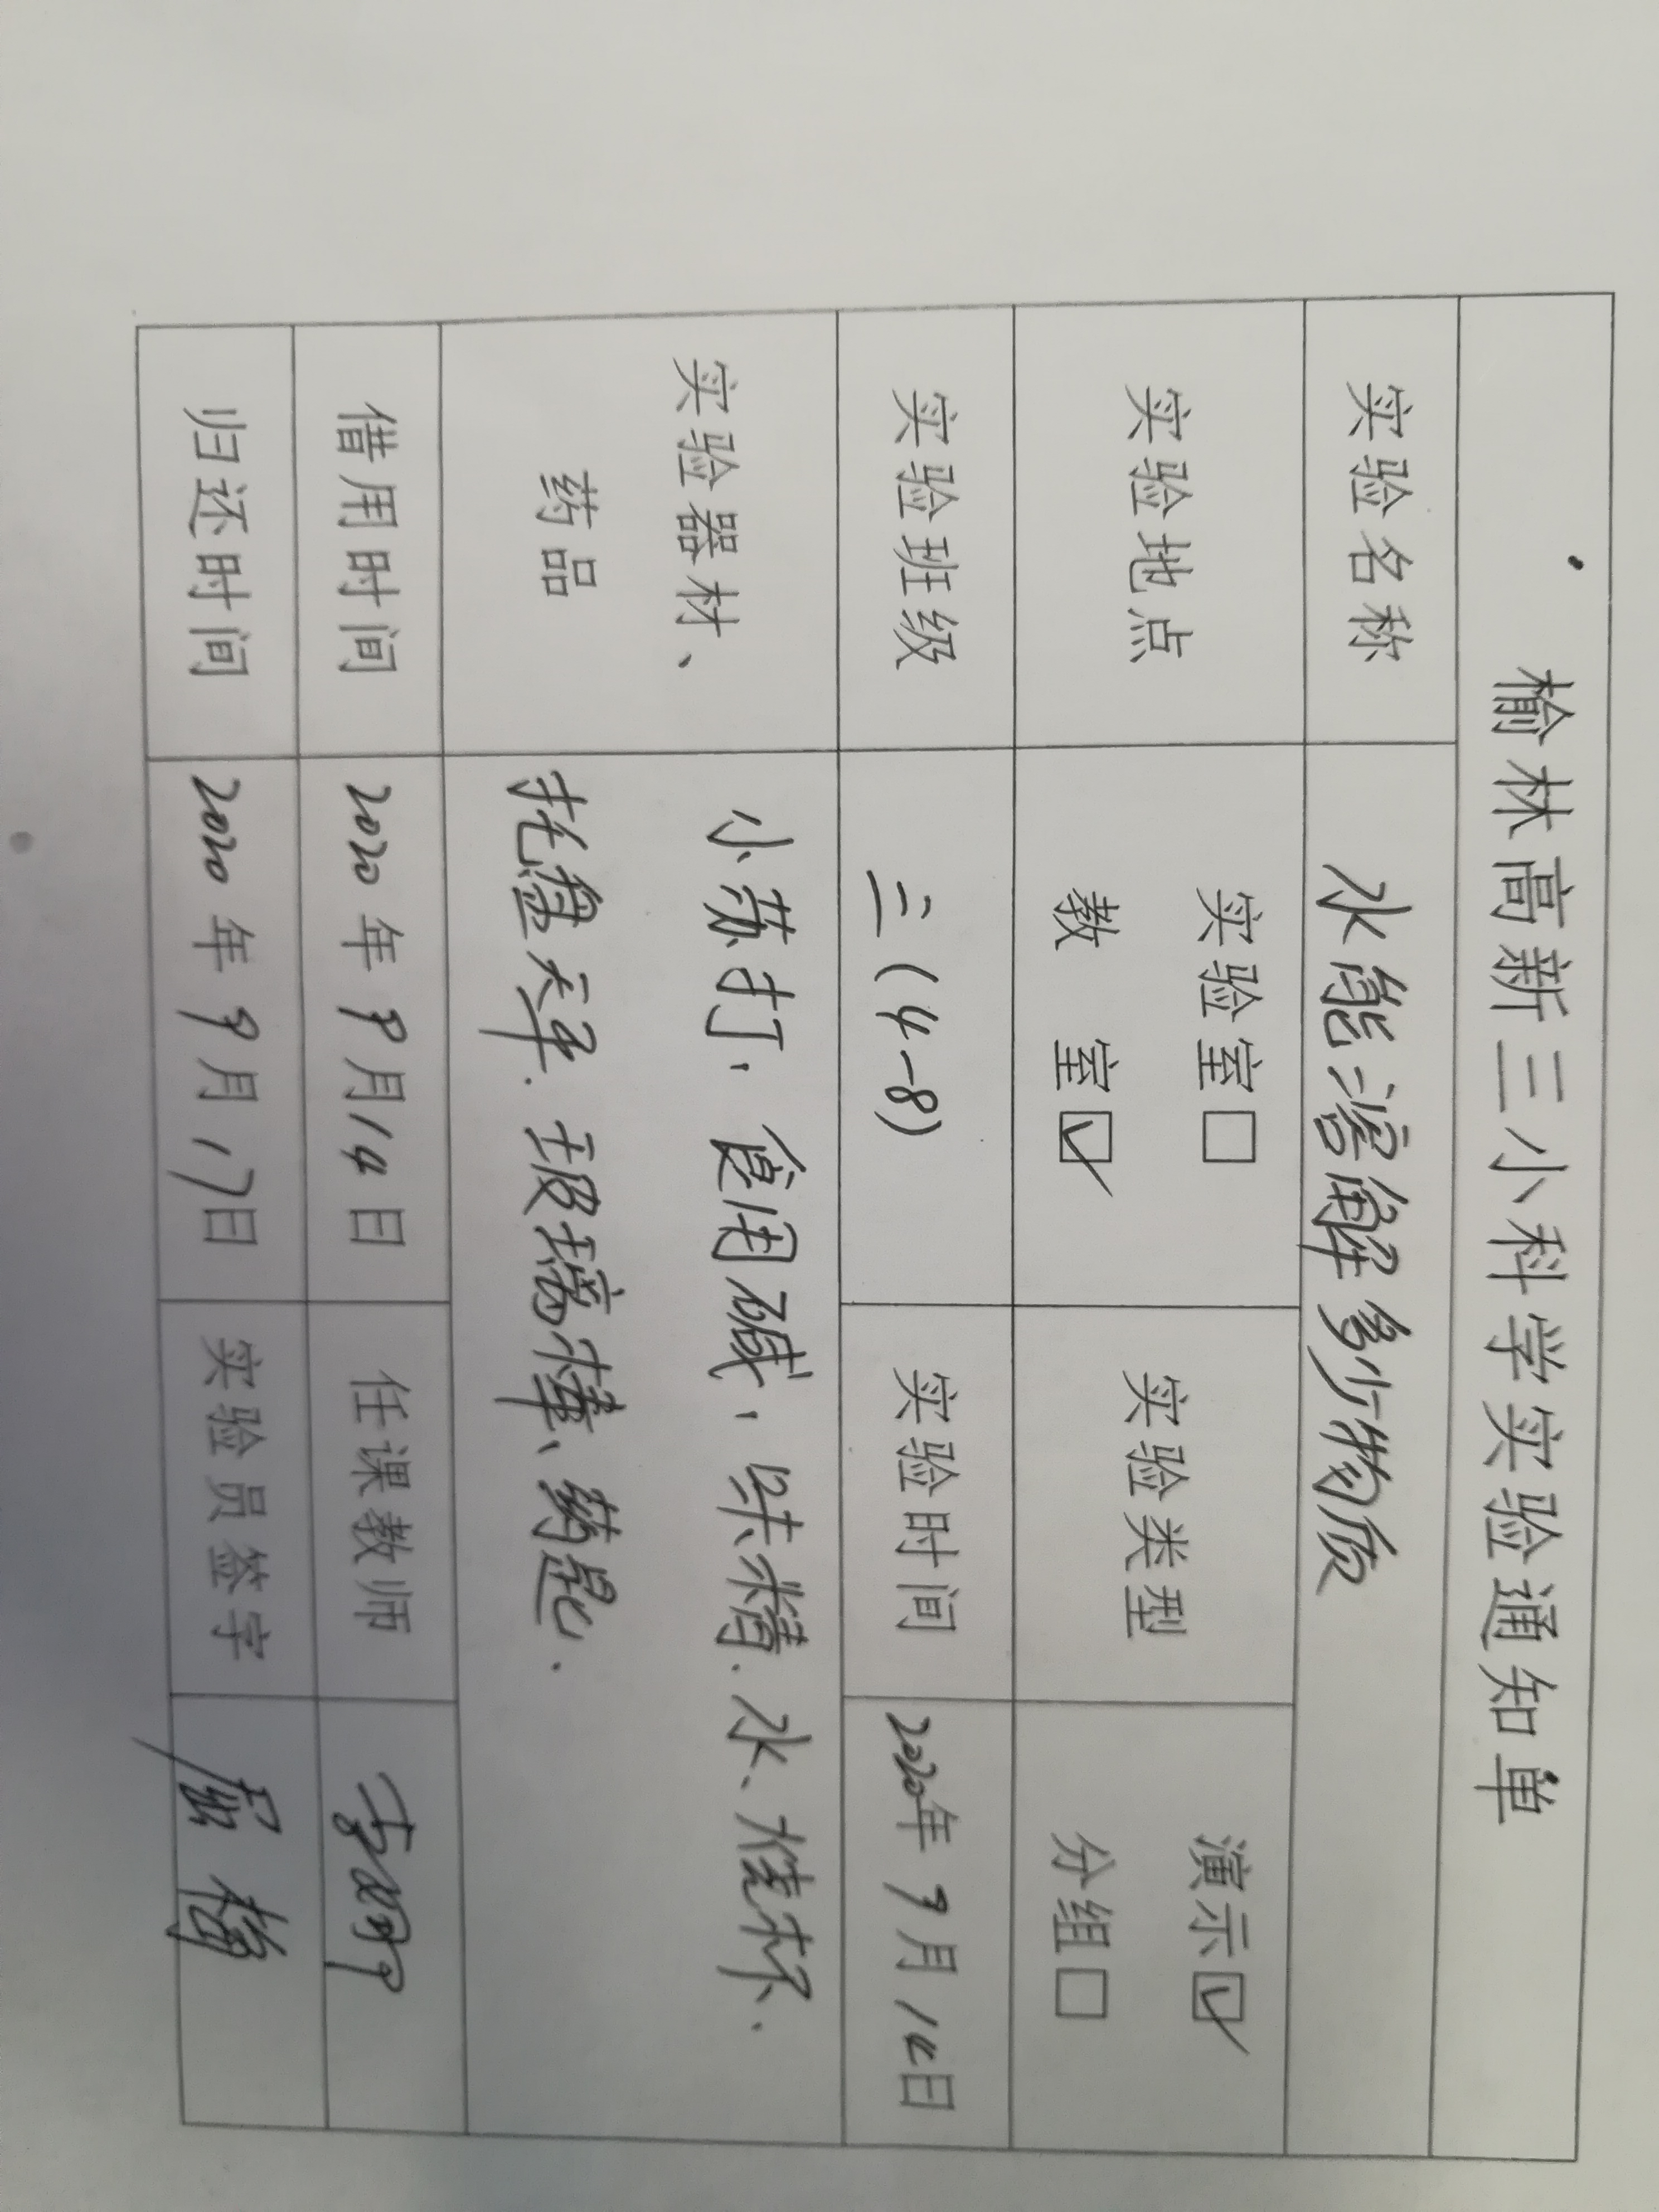 榆林高新三小科学实验通知单
实验名称 水能溶解多少物质
实验地点 实验室□ 教 室☑ 实验类型 演示☑ 分组□
实验班级 三(4-8) 实验时间 2020年9月14日
实验器材、药品 小苏打、食用碱、味精、水、烧杯、
托盘天平、玻璃棒、药匙.
借用时间 2020年9月14日 任课教师
归还时间 2020年9月17日 实验员签字 屈梅